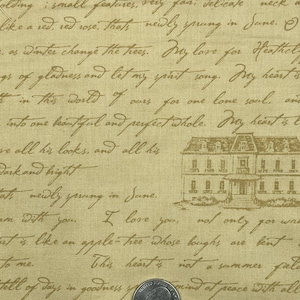 olding small features, very fair, delicate neck a
like a red, red rose, that's newly sprung in June.
as winter change the trees. My love for Heathcli
ngs of gladness and let my spirit song. My heart is
th in this world of ours for one lone soul, an
into one beautiful and perfect whole. My heart is l
ve all his looks, and all his
dark and bright
that's newly sprung in June.
am with you. I love you, not only for wh
rt is like an apple-tree whose boughs are bent
to me. This heart is not a summer fal
full of days in goodness sp mind at peace with all